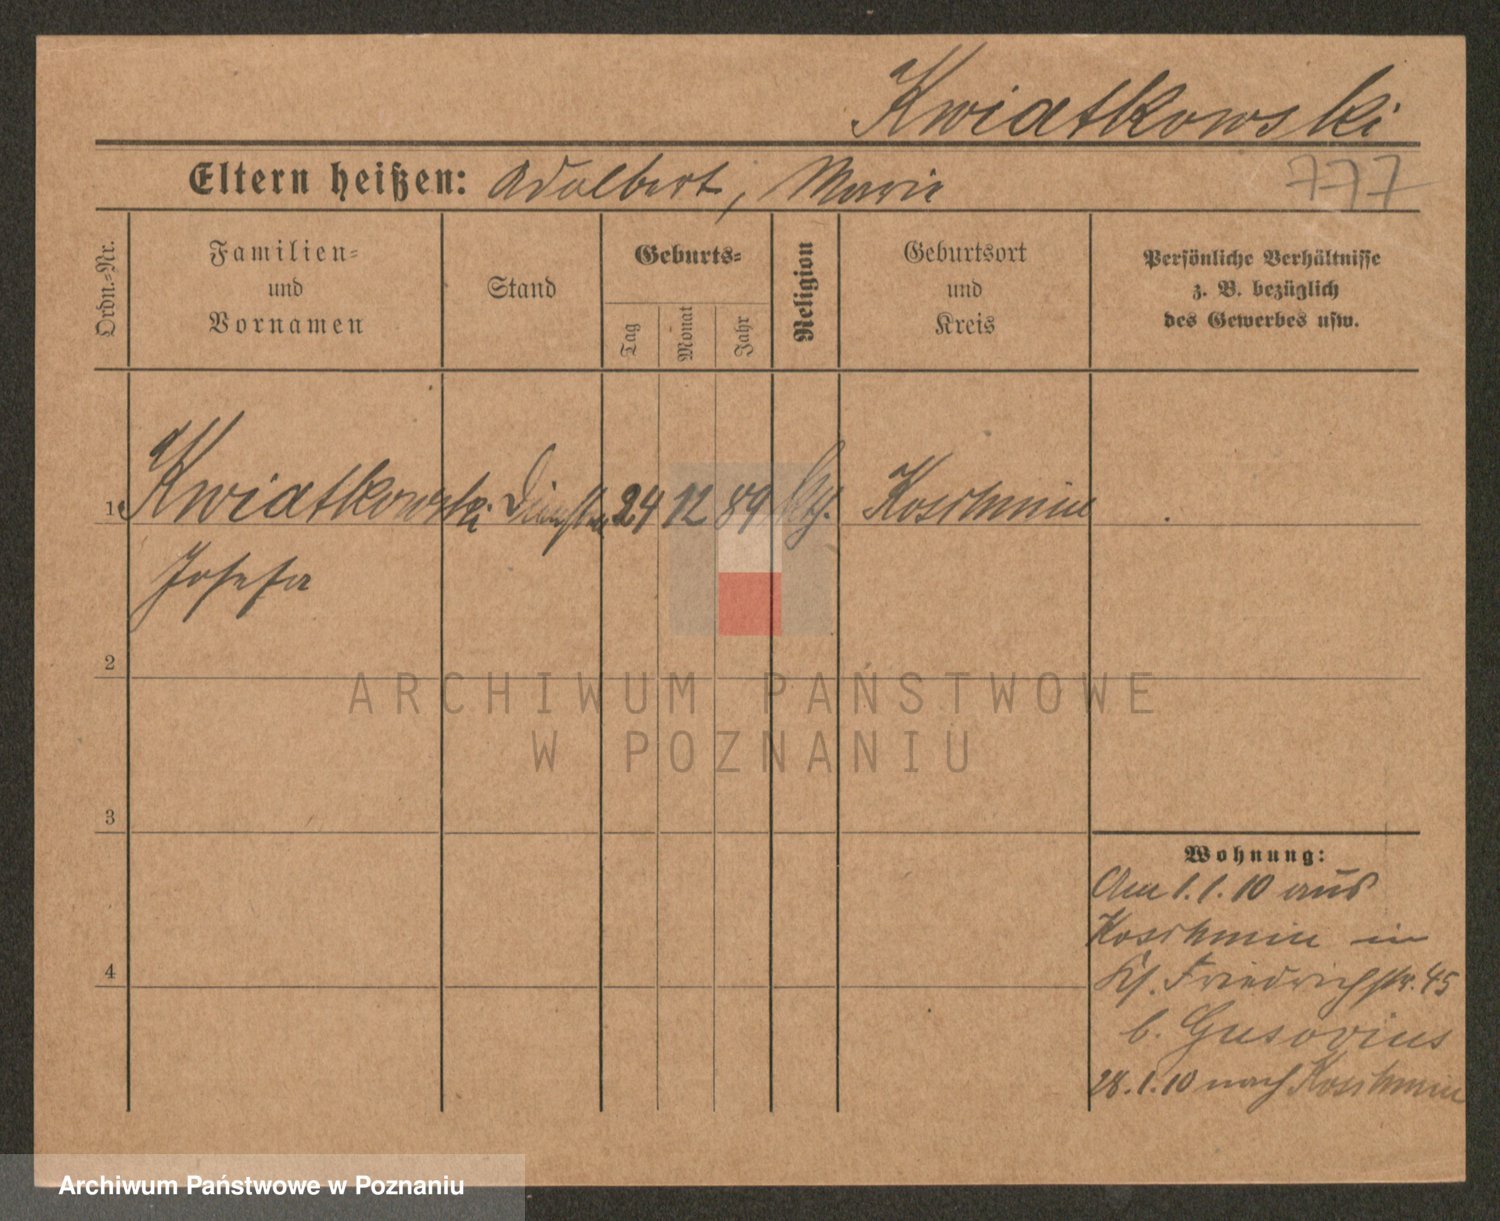 Kwiatkowski
Eltern heißen: Adalbert, Marie
777
Ordn.-Nr.
Familien-
und
Vornamen
Stand
Geburts-
Tag
Monat
Jahr
Religion
Geburtsort
und
Kreis
Persönliche Verhältnisse
z. B. bezüglich
des Gewerbes usw.
1 Kwiatkowski 24 12 89 Koschmin
Josefa
2
ARCHIWUM PAŃSTWOWE
W POZNANIU
3
4
Wohnung:
Am 1.1.10 aus
Koschmin in
Friedrichstr. 45
b. Gusovius
28.1.10 nach Koschmin
Archiwum Państwowe w Poznaniu